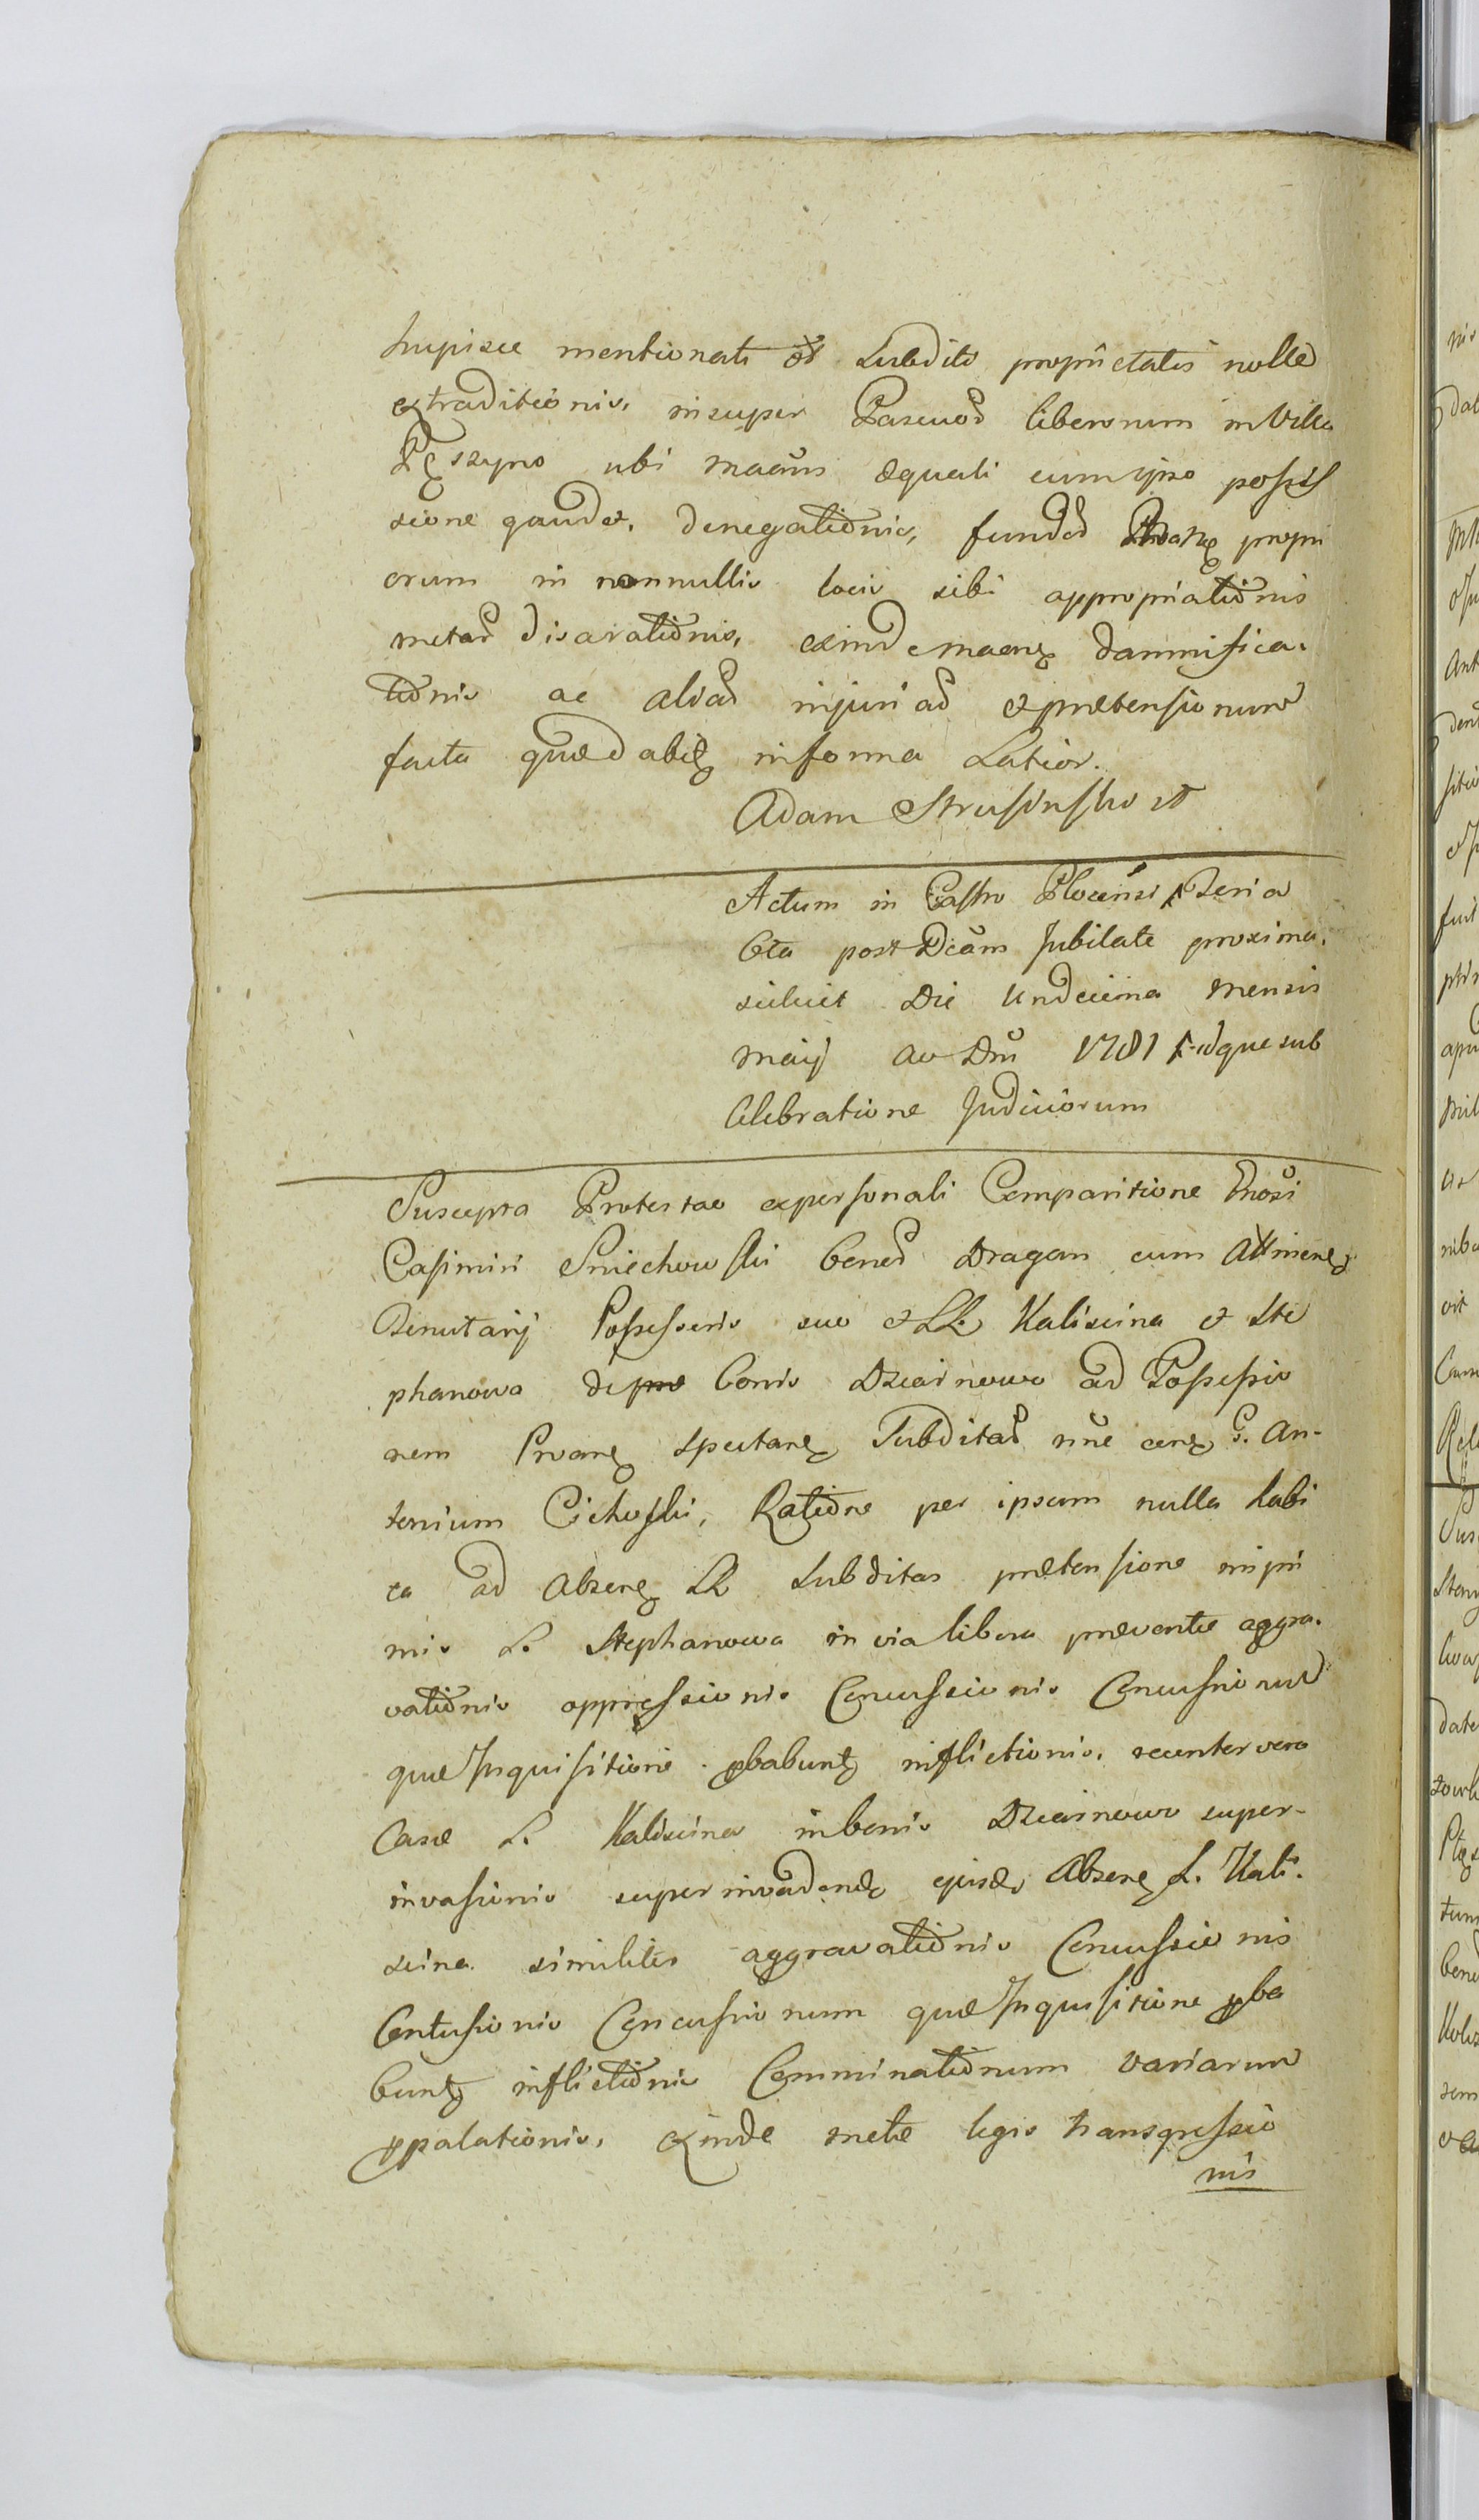 hupisce mentionati Subditi proprietatis nolle
extraditionis, insuper Pascuor liberorum in Villa
ubi maans æquali cum ipso posses
sione gaudet, denegationis, fundor propri
orum in nonnullis locis sibi appropriationis
metar disarationis, exinde maane damnifica-
tionis ac aliar injuriar et prætensionum
facta quæ dabit in forma Latior.
Adam Strusinski
Actum in Castro Plocensi Feria
6ta post Dcam Jubilate proxima,
scilicet Die Undecima Mensis
Maij Ao Dni 1781 idque sub
Celebratione Judiciorum
Suscepta Protestao ex personali Comparitione Gnosi
Casimiri Sniechowski bonor Dragan cum Attinen
Tenutarij Possessoris sue et LL Kaliscina et Ste
phanowa de bonis Dziainowo ad Possessio
nem Proane spectane Subditar nne cone G. An-
tonium Cichoski, Ratione per ipsum nulla habi
ta ad Absene LL Subditas prætensione impri
mis L. Stephanowa in via libera præventæ aggra-
vationis oppressionis Concussionis Concussionum
quæ Inquisitione pbabunt inflictionis, recenter vero
Casæ L. Kaliscina in bonis Dziainowo super-
invasionis superinvadende ejusde Absene L. Kali-
scina similiter aggravationis Concussionis
Contusionis Concussionum quæ Inquisitione pba
bunt inflictionis Comminationum variarum
ppalationis, exinde metæ legis transgressio
nis